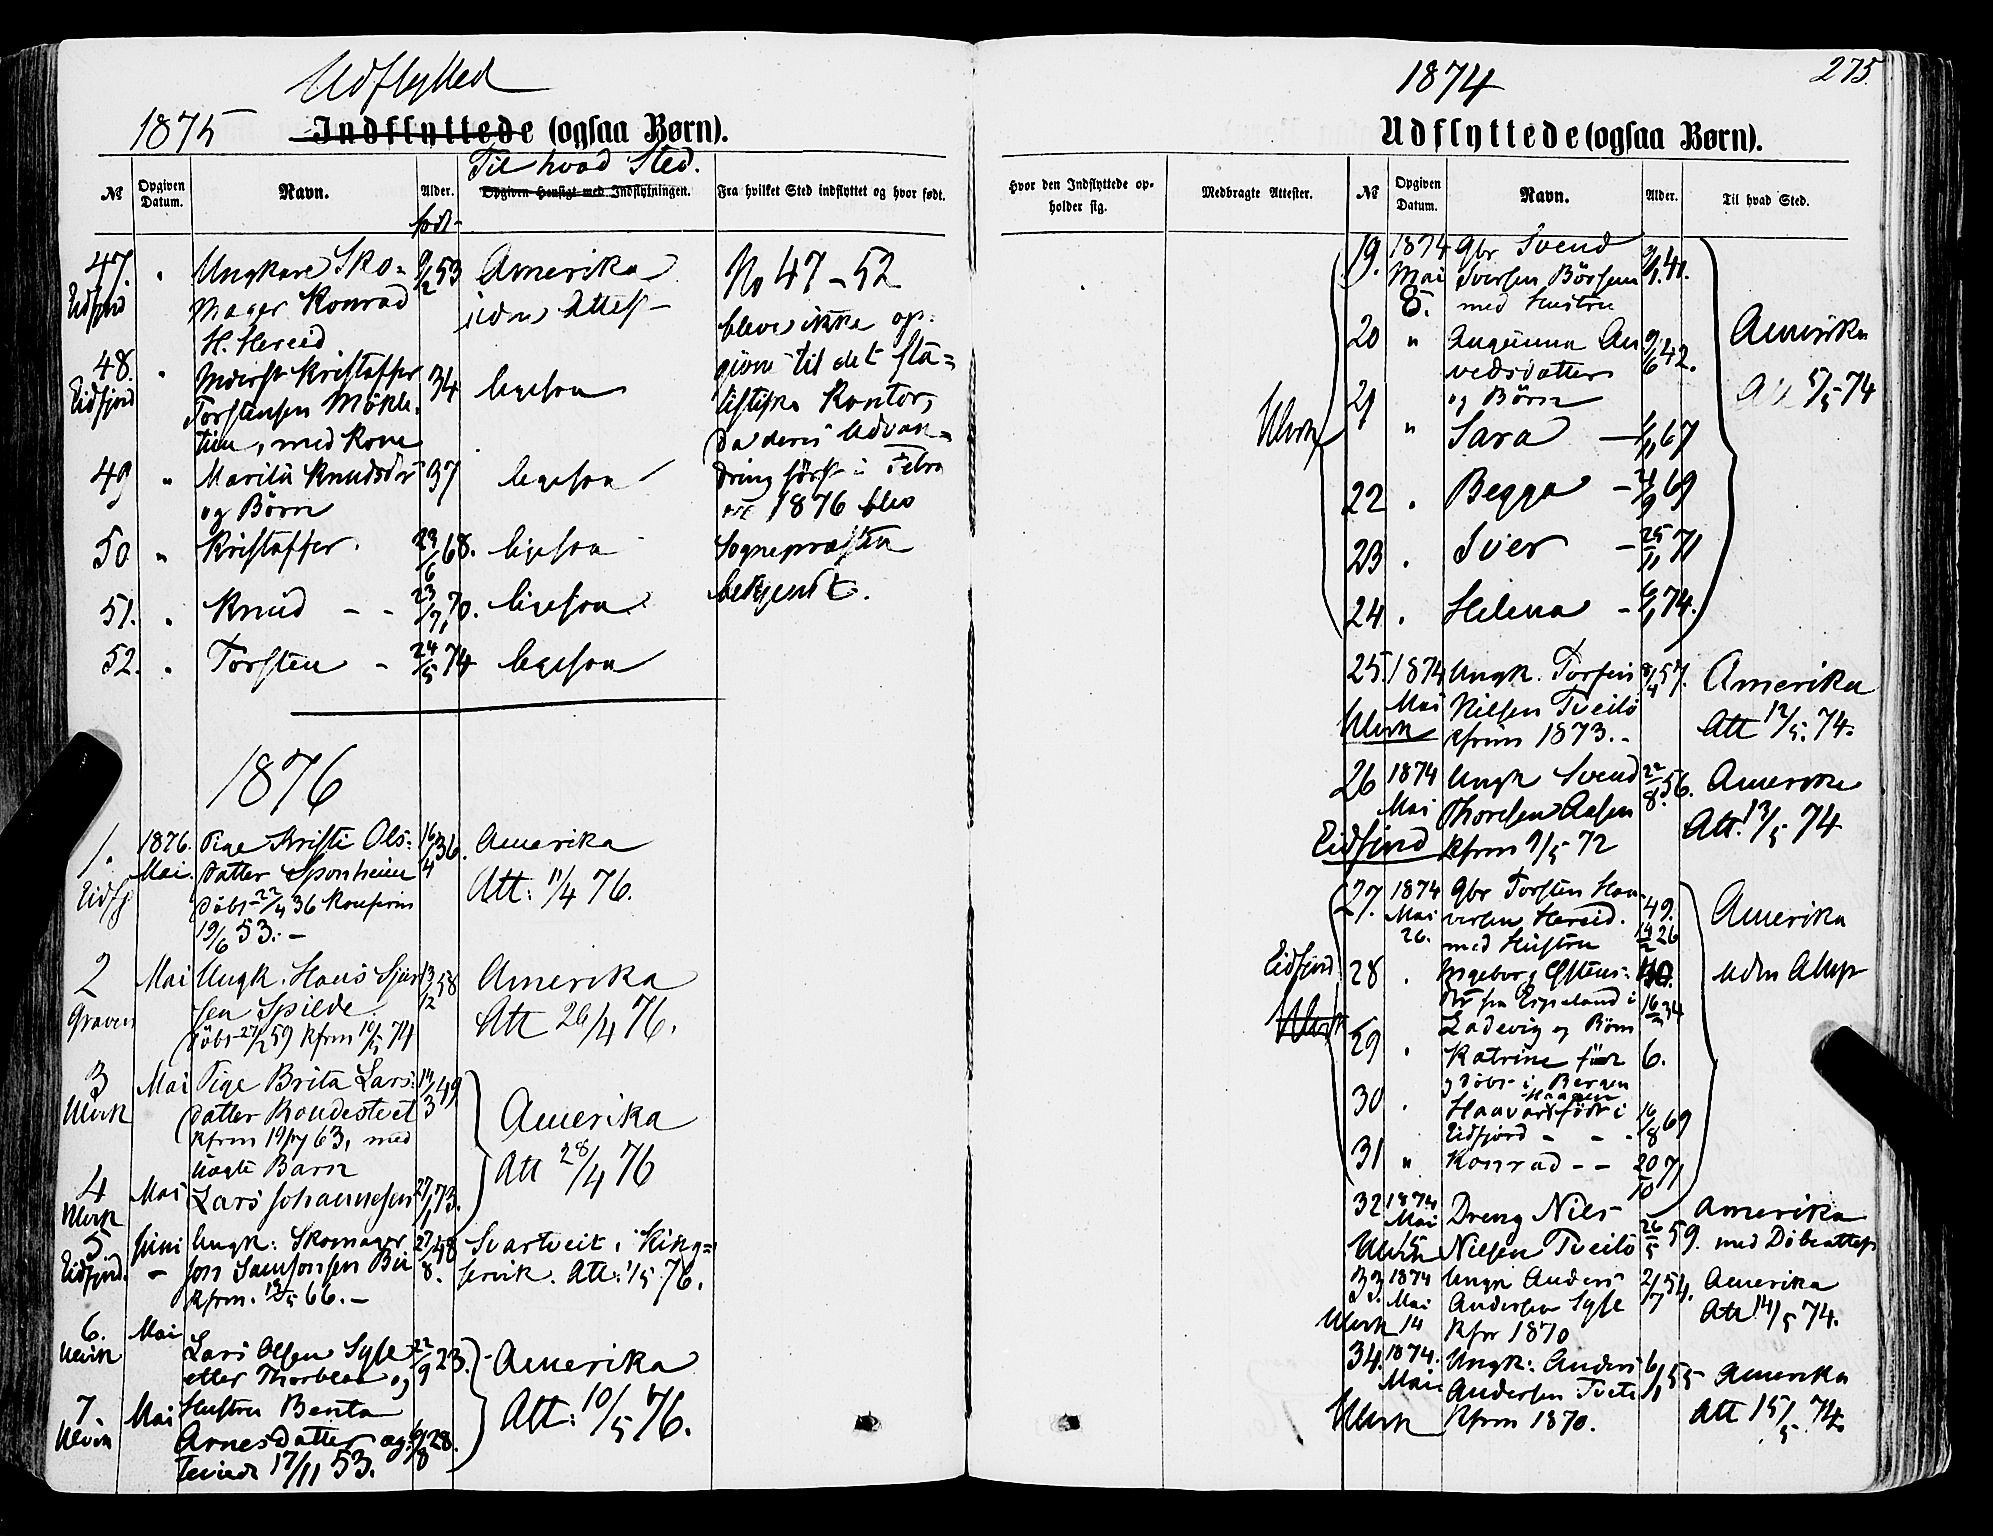 Udflytted
1875
Indflyttede (ogsaa Børn).
Til hvad Sted.
№
Opgiven Datum.
Navn.
Alder.
født
Opgiven Hensigt med Indflytningen.
Fra hvilket Sted indflyttet og hvor født.
47. Ungkare Sko= 9/2 53 Amerika No 47-52
Eidfjord mager Konrad uden Attest bleve ikke op:
H. Hereid givne til det sta=
48. Kristoffer 34 ligesaa tistiske Kontor,
Eidfjord Torstensen da deres Udvan=
med Kone
49 " Marita Knudsdr 37 ligesaa dring først i Febru
og Børn 1876 blev
50 " Kristoffer. 29/6 68. ligesaa Sognepræsten
51. " Knud - - 23/7 70. ligesaa bekjendt.
52. " Torsten - 24/5 74 ligesaa
1876
1. 1876. Pige Kristi Ols= 16/4 36. Amerika
Eidfj Mai. datter Sponheim Att: 11/4 76.
døbt 22/4 36 Konfirm
19/6 53. -
2 Mai Ungk. Hans Sjur 13/2 58 Amerika
Graven sen Spilde. Att 26/4 76.
døbt 27/2 59 Kfrm 10/5 74
3 Mai Pige Brita Lars= 14/3 49
Ulvik datter Bondestvet Amerika
Kfrm 19/7 63, med Att 28/4 76
uægte Barn
4 Mai Lars Johannesen 27/1 73.
Ulvik
5 Juni Ungk: Skomager 27/8 48 Svartveit i King=
Eidfjord. - Samsonsen servik. Att: 1/5 76.
Kfrm. 13/5 66. -
6. Mai Lars Olsen Syse 22/9 23. Amerika
Ulvik etter Thorblaa og Att: 10/5 76.
7. Mai Hustru Benta
Ulvik Arnesdatter 28.
17/11 53.
1874
275
Udflyttede (ogsaa Børn).
Hvor den Indflyttede op-
holder sig.
Medbragte Attester.
№
Opgiven Datum.
Navn.
Alder.
Til hvad Sted.
19. 1874 Gbr Svend 41.
Mai Sversen Børsem
8. med Hustru Amerika
20 " An 9/6 42. 5/5-74
vedsdatter
21 og Børn
Ulvik " Sara - 67
22 " Begga - 69
23 " Sver - 25/11 71
24 " Helena - 74.
25. 1874 Ungk. Torfin 8/4 57. Amerika
Mai Nielsen Tveito Att 12/5. 74.
Ulvik Kfrm 1873. -
26 1874 Ungk Svend 22/8. 56. Amerika
Mai Thorsen Aasen Att. 13/5 74
Eidfjord Kfrm 9/5 72
27. 1874 Gbr Torsten Haa 49. Amerika
Mai versen Hereid. 14/2 26
26. med Hustru
Eidfjord 28 " Ingeborg Østens: 40. uden Attest
fra Espeland i 16/3 34
Ulvik Ladevig og Børn
29 " Katrine født 6.
og døbt i Bergen
30 " Haagen
Haavard født i 16/8 69
Eidfjord - - -
31 " Konrad - - 20/10 71
32 1874 Dreng Nils 26/5 59. Amerika
Mai
Ulvik 15 Nielsen Tveito med Døbeattest
33. 1874 Ungk Anders 2/7 54. Amerika
Mai Andersen Syse Att 14/5 74.
Ulvik 14 Kfr 1870
34. 1874. Ungk: Anders 6/1 55 Amerika
Mai Andersen Tveito Att 15/5 74.
Ulvik Kfrm 1870.